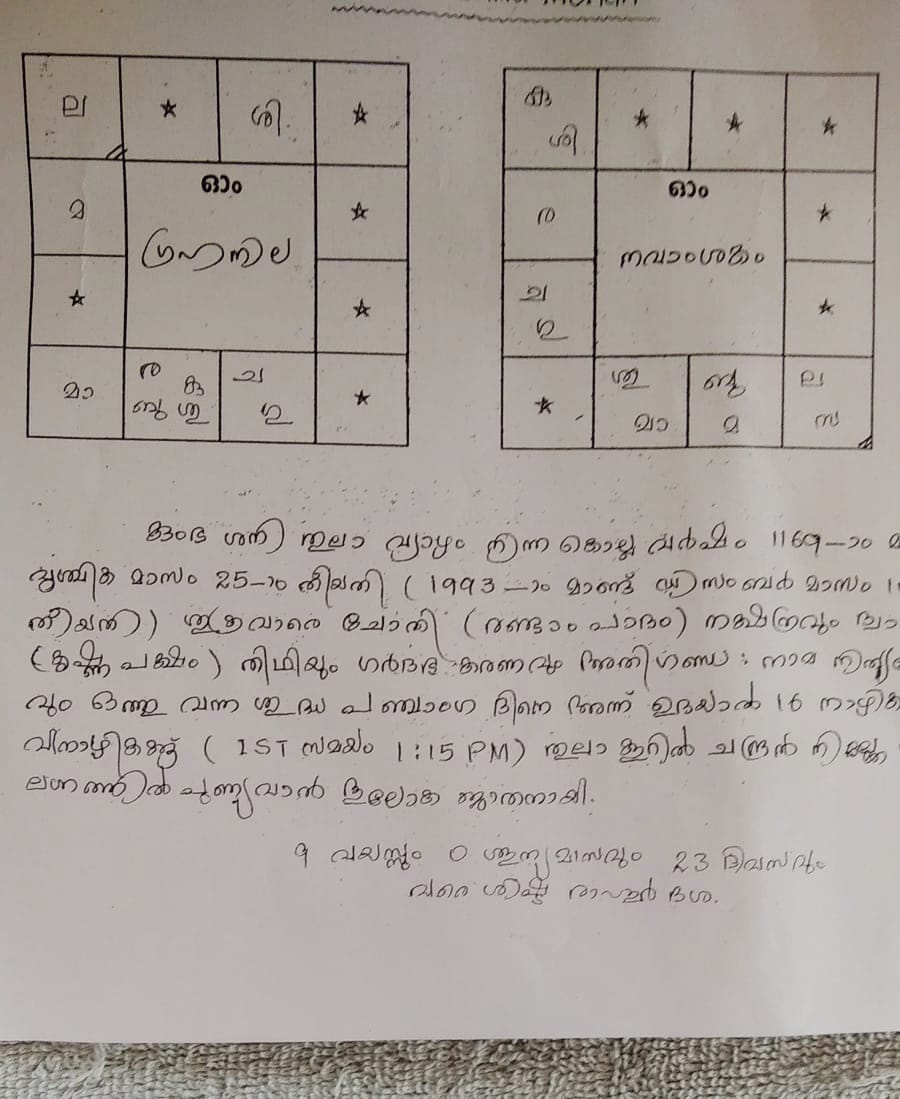 ല ★ ശി ★
മ ഓം ★
ഗ്രഹനില
★ ★
മാ ര കു ബു ശു ച ഗു ★
കു ശി ★ ★ ★
ര ഓം ★
നവാംശകം
ച ഗു ★
★ ശു മാ ബു മ ല സ
കുംഭ ശനി തുലാ വ്യാഴം നിന്ന കൊല്ല വർഷം 1169–ാം
വൃശ്ചിക മാസം 25–ാം തീയതി ( 1993 –ാം മാണ്ട് ഡിസംബർ മാസം
തീയതി ) ശുക്രവാരെ ചോതി ( രണ്ടാം പാദം ) നക്ഷത്രവും
( കൃഷ്ണ പക്ഷം ) തിഥിയും ഗർദഭ കരണവും അതിഗണ്ഡ : നാമ
വും ഒത്തു വന്ന ശുദ്ധ പഞ്ചാംഗ ദിനെ അന്ന് ഉദയാൽ 16 നാഴിക
വിനാഴികയ്ക്ക് ( IST സമയം 1:15 PM ) തുലാ കൂറിൽ ചന്ദ്രൻ
ലഗ്നത്തിൽ പുണ്യവാൻ ഭൂലോക ജാതനായി.
9 വയസ്സും 0 ശൂന്യമാസവും 23 ദിവസവും
വരെ ശിഷ്ട രാഹുർ ദശ.